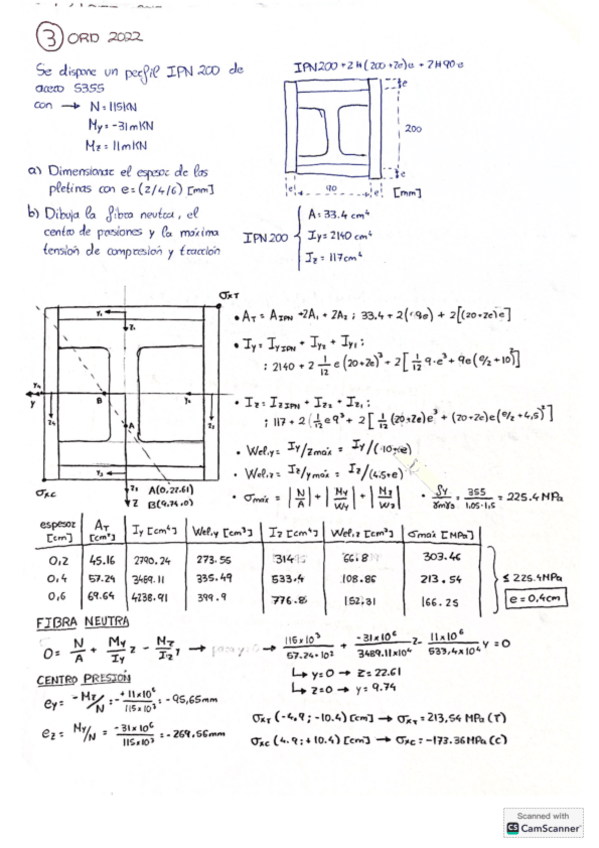 3 ORD 2022
Se dispone un perfil IPN 200 de
acero S355
con → N = 115KN
My = -31mKN
Mz = 11mKN
a) Dimensionar el espesor de las
pletinas con e = (2/4/6) [mm]
b) Dibuja la fibra neutra, el
centro de pasiones y la máxima
tensión de compresión y tracción
IPN200 + 2#(200+2e)e + 2#90·e
e
200
e
e 90 e [mm]
IPN 200
A = 33.4 cm²
Iy = 2140 cm⁴
Iz = 117cm⁴
σxT
Y₁
Z₁
B
A
Y
Z₂
Y₃
σxc
Z₁
Z
A(0,22.61)
B(9.74,0)
• AT = AIPN + 2A₁ + 2A₂ ; 33.4 + 2(·9e) + 2[(20+2e)e]
• Iy = IyIPN + Iy₂ + Iy₁ :
; 2140 + 2 1/12 e(20+2e)³ + 2[1/12 9·e³ + 9e(e/2+10)²]
• Iz = IzIPN + Iz₂ + Iz₁ :
; 117 + 2(1/12 e9³ + 2[1/12 (20+2e)e³ + (20+2e)e(e/2+4,5)²]
• Wel,y = Iy/Zmáx = Iy/(10+e)
• Wel,z = Iz/ymáx = Iz/(4.5+e)
• σmáx = |N/A| + |My/Wy| + |Mz/Wz| • fy/γmγs = 355/1.05·1.5 = 225.4 MPa
espesor [cm] AT [cm²] Iy [cm⁴] Wel,y [cm³] Iz [cm⁴] Wel,z [cm³] σmax [MPa]
0,2 45.16 2790.24 273.55 314 66.8 303.46
0,4 57.24 3489.11 335.49 533.4 108.86 213.54
0,6 69.64 4238.91 399.9 776.8 152,31 166.25
≤ 225.4MPa
e = 0,4cm
FIBRA NEUTRA
0 = N/A + My/Iy z - Mz/Iz y → 115x10³/57.24·10² + -31x10⁶/3489.11x10⁴ z - 11x10⁶/533,4x10⁴ y = 0
↳ y=0 → z = 22.61
↳ z=0 → y = 9.74
CENTRO PRESIÓN
ey = -Mz/N = -11x10⁶/115x10³ = -95,65mm
ez = My/N = -31x10⁶/115x10³ = -269.56mm
σxT (-4.9 ; -10.4) [cm] → σxT = 213,54 MPa (T)
σxc (4.9 ; +10.4) [cm] → σxc = -173.36MPa (C)
Scanned with
CS CamScanner